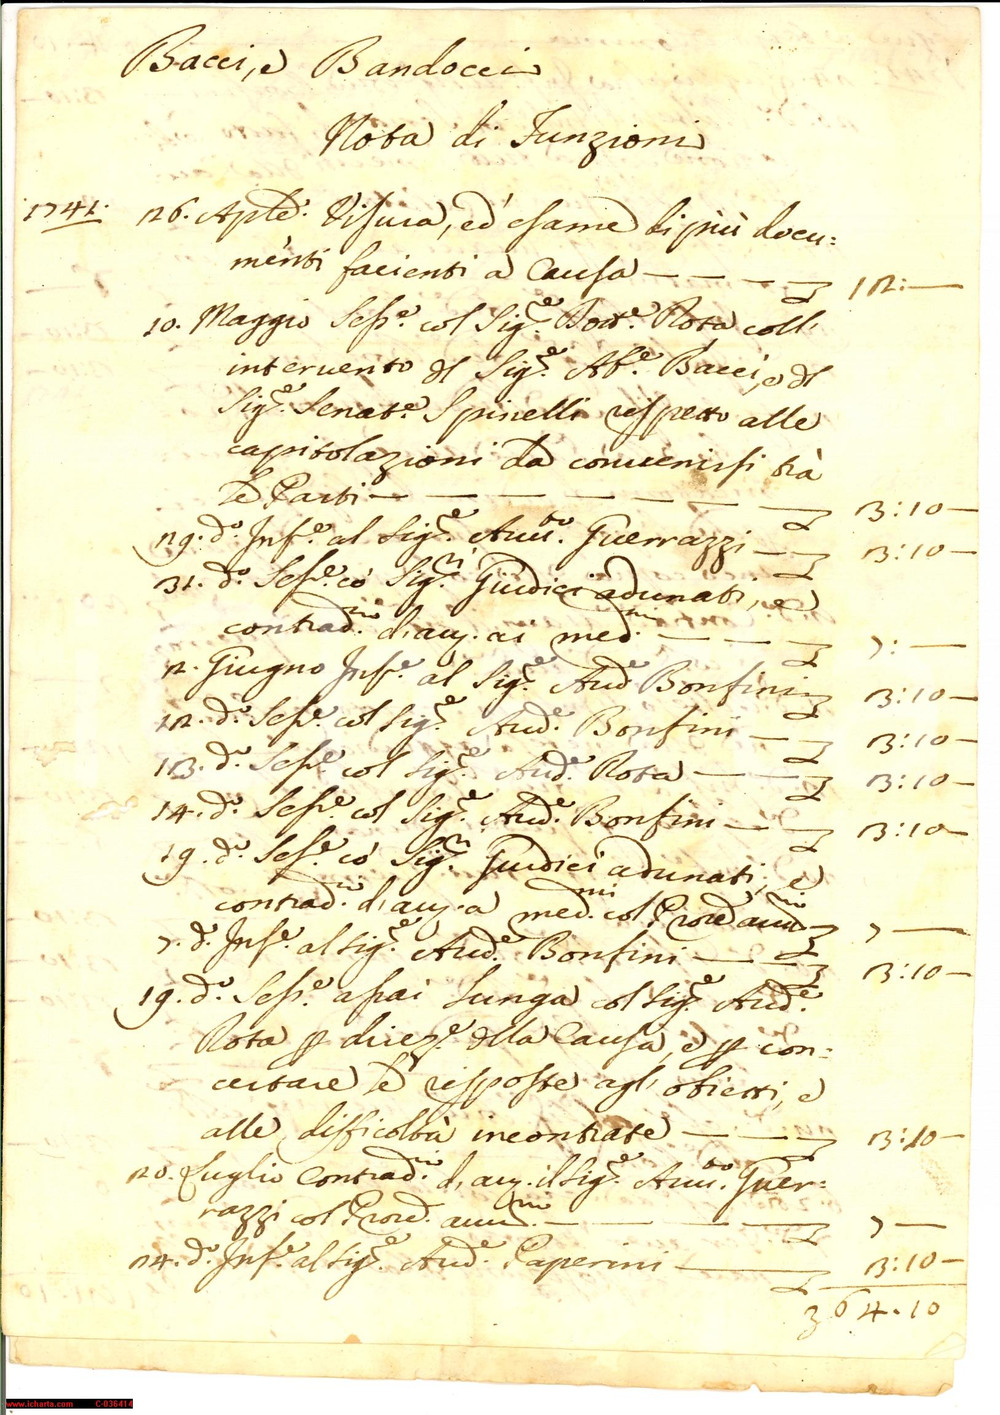 Bacci, e Bandocci
Nota di Funzioni
1741. 26. Aple. Visura, ed esame di più docu=
menti facienti a Causa — — — — 12:—
10. Maggio Sesse. col Sige. Rota coll'
intervento del Sige. Abe. Bacci, e del
Sige. Senate. Spinelli rispetto alle
capitolazioni da convenirsi trà
le Parti — — — — — — — 3:10—
29. do. Infe. al Sige. Audto. Guerrazzi — — 3:10—
31. do. Sesse. co' Sigri. Giudici adunati, e
contradrio. d, avj. ai medmi. — — — 7:—
2. Giugno Infe. al Sige. Aude Bonfini 3:10—
12. do. Sesse. col Sige. Aude. Bonfini — — 3:10—
13. do. Sesse. col Sige. Aude. Rota — — — 3:10—
14. do. Sesse. col Sige. Aude. Bonfini — — 3:10—
19. do. Sesse. co' Sigri. Giudici adunati, e
contradrio. d, avj. a medmi. col 7—
7. do. Infe. al Sige. Aude. Bonfini — — 3:10—
19. do. Sesse. assai lunga col Sige. Aude.
Rota p direze. della Causa, e p con=
certare le risposte agl' obietti, e
alle difficoltà incontrate — — — 3:10—
20. Luglio Contradrio. d, avj. il Sige. Audto. Guer=
razzi col — — — — 7—
24. do. Infe. al Sige. Aude. Paperini — 3:10—
64.10
www.icharta.com C-036414